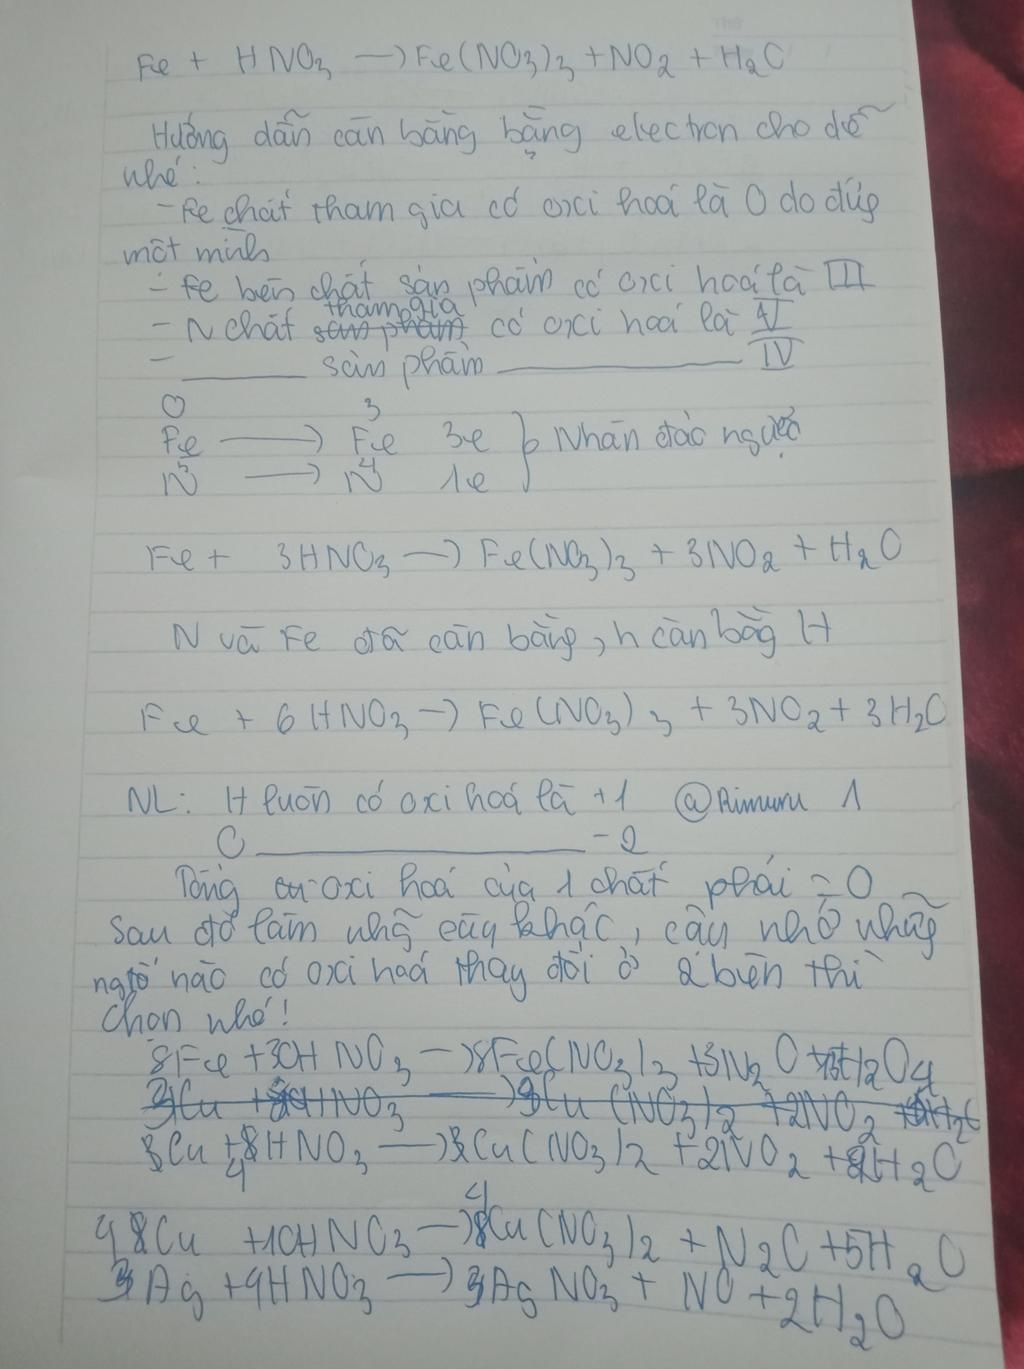 Fe + HNO₃ → Fe(NO₃)₃ + NO₂ + H₂O
Hướng dẫn cân bằng bằng electron cho dễ
nhé:
- Fe chất tham gia có oxi hoá là 0 do đứg
một mình
- Fe bên chất sản phẩm có oxi hoá là III
tham gia
- N chất sản phẩm có oxi hoá là V
- ______ sản phẩm ______ IV
0 3
Fe → Fe 3e } Nhân đảo ngược
N → N 1e
Fe + 3HNO₃ → Fe(NO₃)₃ + 3NO₂ + H₂O
N và Fe đã cân bằng, h cân bằg H
Fe + 6HNO₃ → Fe(NO₃)₃ + 3NO₂ + 3H₂O
NL: H luôn có oxi hoá là +1 @Rimuru 1
O ______ -2
Tổng oxi hoá của 1 chất phải = 0
Sau đó làm nhữ câu khác, cậu nhớ nhữg
ngtố nào có oxi hoá thay đổi ở 2 bên thì
chọn nhé!
8Fe + 30HNO₃ → 8Fe(NO₃)₃ + 3N₂O + 15H₂O
3Cu + 8HNO₃ → 3Cu(NO₃)₂ + 2NO₂ + H₂O
Cu + 4HNO₃ → Cu(NO₃)₂ + 2NO₂ + 2H₂O
4Cu + 10HNO₃ → 4Cu(NO₃)₂ + N₂O + 5H₂O
3Ag + 4HNO₃ → 3AgNO₃ + NO + 2H₂O